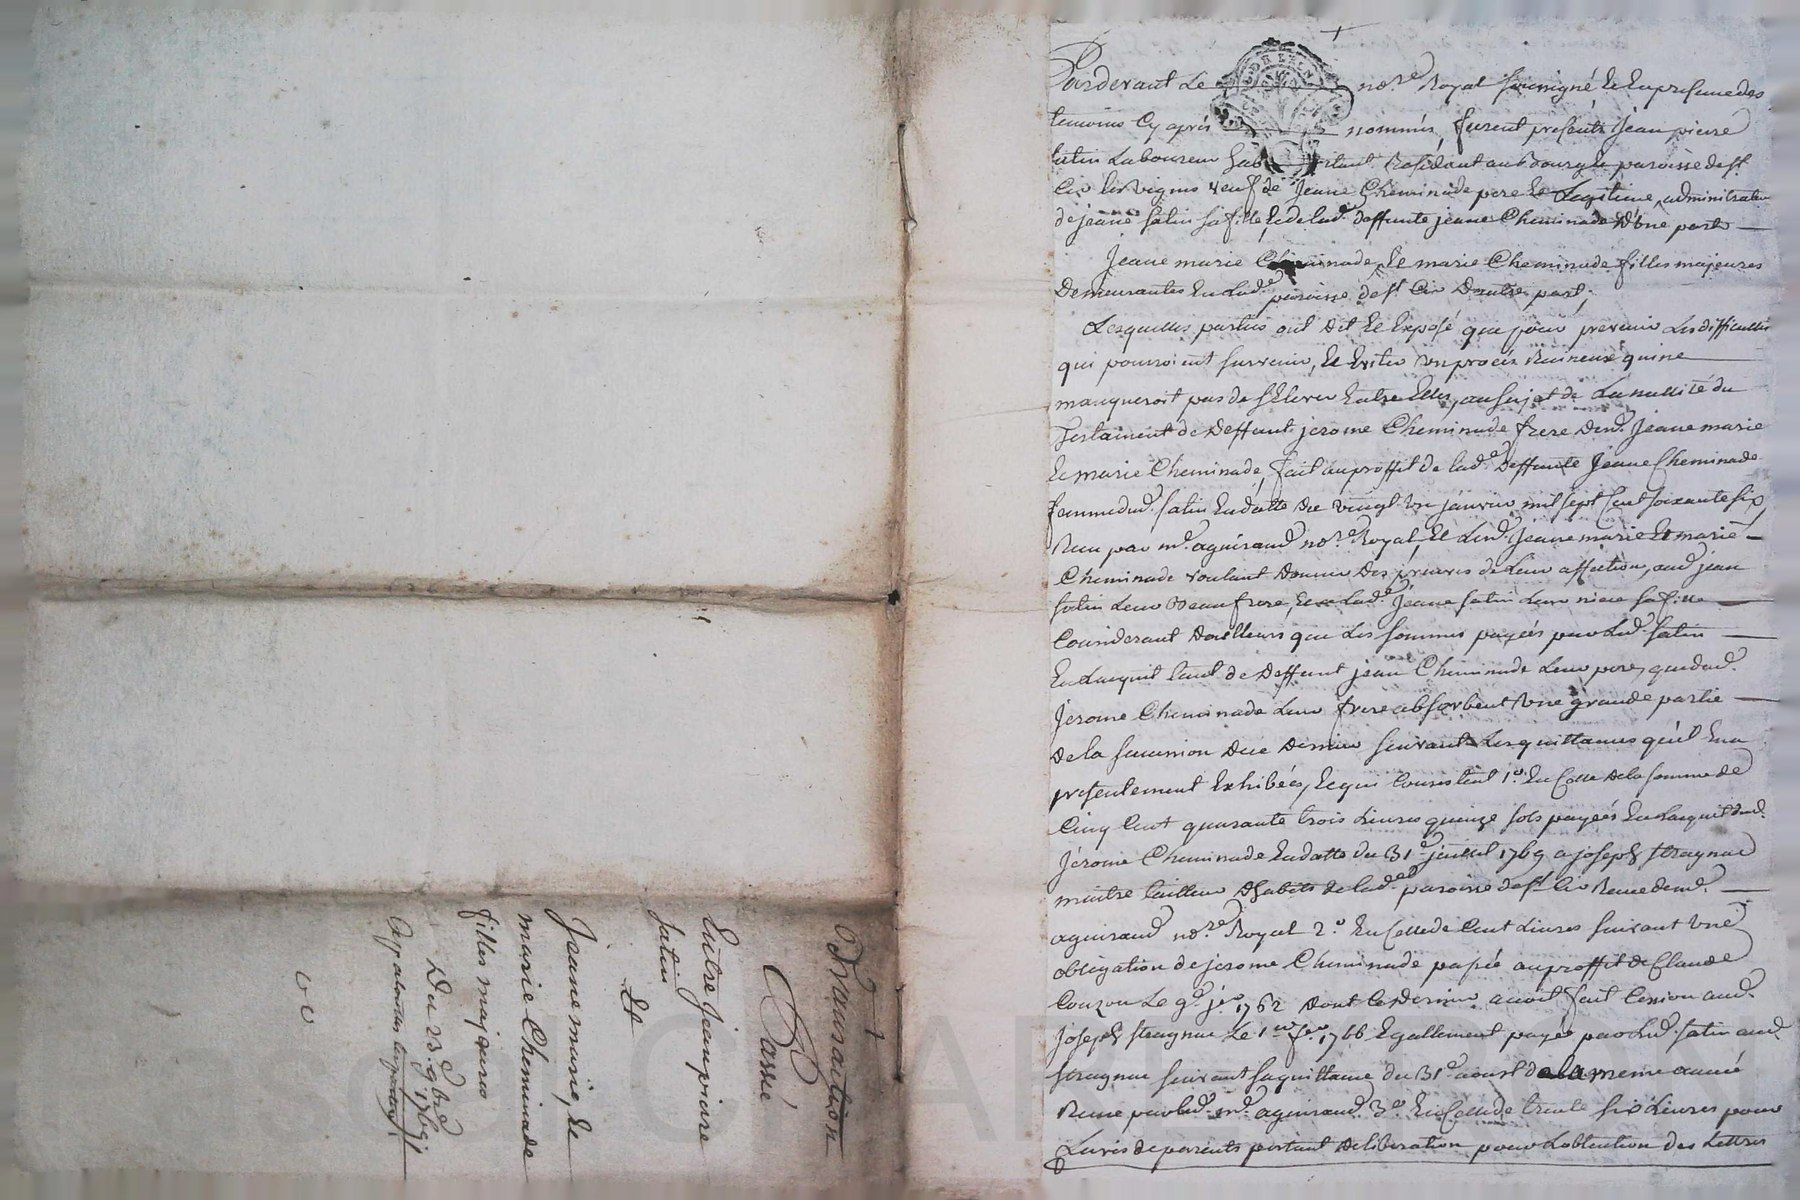 Transaction
Passée
Entre Jean pierre
Satin
Et
Jeane marie, Et
marie Cheminade
filles majeures
Du 23e 9bre 1769
Pardevant Le nore Royal soussigné Et En presence des
temoins Cy aprés nommés, furent presents Jean pierre
satin Laboureur habitant Residant au Bourg Et paroisse de st
Cir les vignes veuf de Jeane Cheminade pere Et Legitime administrateur
de jeane satin sa fille, Et de lad.e deffunte jeane Cheminade D'une part
Jeane marie Cheminade, Et marie Cheminade filles majeures
Demeurantes En Lad.e paroisse de st Cir D'autre part,
Lesquelles parties ont dit Et Exposé que pour prevenir Les difficultés
qui pourroient survenir, Et Eviter un procés Ruineux qui ne
manqueroit pas de s'Elever Entre Elles, au sujet de La nullité du
Testament de deffunt jerome Cheminade frere Desd. Jeane marie
Et marie Cheminade, fait au proffit de lad.e Deffunte Jeane Cheminade
femme dud. satin En datte du vingt un janvier mil sept Cent soixante six
Reçu par m.e aguiraud no.re Royal, Et Lesd. Jeane marie Et marie
Cheminade voulant Donner Des preuves de Leur affection, aud jean
satin Leur Beaufrere, Et a Lad.e Jeane satin Leur niece sa fille
Considerant D'ailleurs que Les sommes payées par Led. satin
En Lacquit tant de Deffunt jean Cheminade Leur pere, que dud.
Jerome Cheminade Leur frere absorbent Une grande partie
De la succession Du Dernier suivant Les quittances qu'il En a
presentement Exhibées, Et qui Consistent 1.o En Celle De la somme de
Cinq Cent quarante trois Livres quinze sols payées En Lacquit dud.
Jérome Cheminade En datte du 31e 1769 a joseph stragnac
maitre tailleur D'habits de lad.e paroisse de st Cir Reçue dud.
aguiraud no.re Royal 2.o En Celle de Cent Livres suivant Une
obligation de jerome Cheminade passée au proffit de Claude
Couzon Le 9e j.er 1762 Dont Ce Dernier avoit fait Cession aud.
Joseph stragnac Le 1er f.er 1766 Egallement payée par Led. satin aud.
stragnac suivant sa quittance du 31e aoust de la meme année
Reçue par led. m.e aguiraud. 3.o En Celle de trente six Livres pour
L'avis de parents portant deliberation pour L'obtention des Lettres